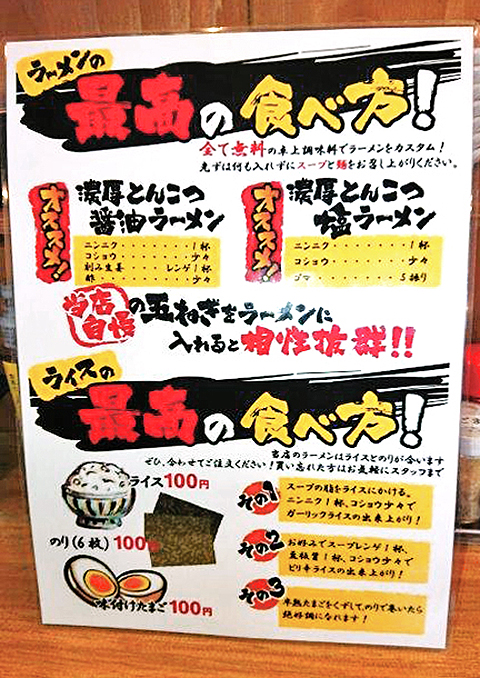 ラーメンの
最高の食べ方!
全て無料の卓上調味料でラーメンをカスタム!
先ずは何も入れずにスープと麺をお召し上がりください。
オススメ!
濃厚とんこつ
醤油ラーメン
ニンニク・・・・・・・・・1杯
コショウ・・・・・・・・・少々
刻み生姜・・・・・レンゲ1杯
酢・・・・・・・・・・・・少々
オススメ!
濃厚とんこつ
塩ラーメン
ニンニク・・・・・・・・・1杯
コショウ・・・・・・・・・少々
ゴマ・・・・・・・・・5振り
当店自慢の玉ねぎをラーメンに
入れると相性抜群!!
ライスの
最高の食べ方!
当店のラーメンはライスとのりが合います
ぜひ、合わせてご注文ください!買い忘れた方はお気軽にスタッフまで
ライス100円
のり(6枚)100円
味付けたまご100円
その1
スープの脂をライスにかける。
ニンニク1杯、コショウ少々で
ガーリックライスの出来上がり!
その2
お好みでスープレンゲ1杯、
豆板醤1杯、コショウ少々で
ピリ辛ライスの出来上がり!
その3
半熟たまごをくずして、のりで巻いたら
絶好調になれます!